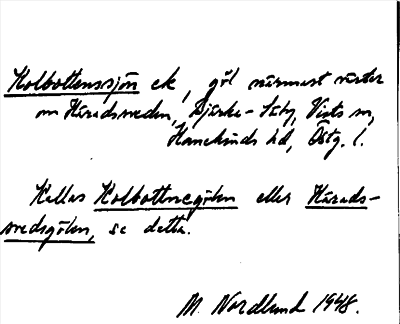 Kolbottenssjön ek, göl närmast väster
om Häradsveden, Bjärka-Säby, Vists sn,
Hanekinds hd, Östg. l.
Kallas Kolbottnegölen eller Härads-
vedsgölen, se detta.
M. Nordlund 1948.